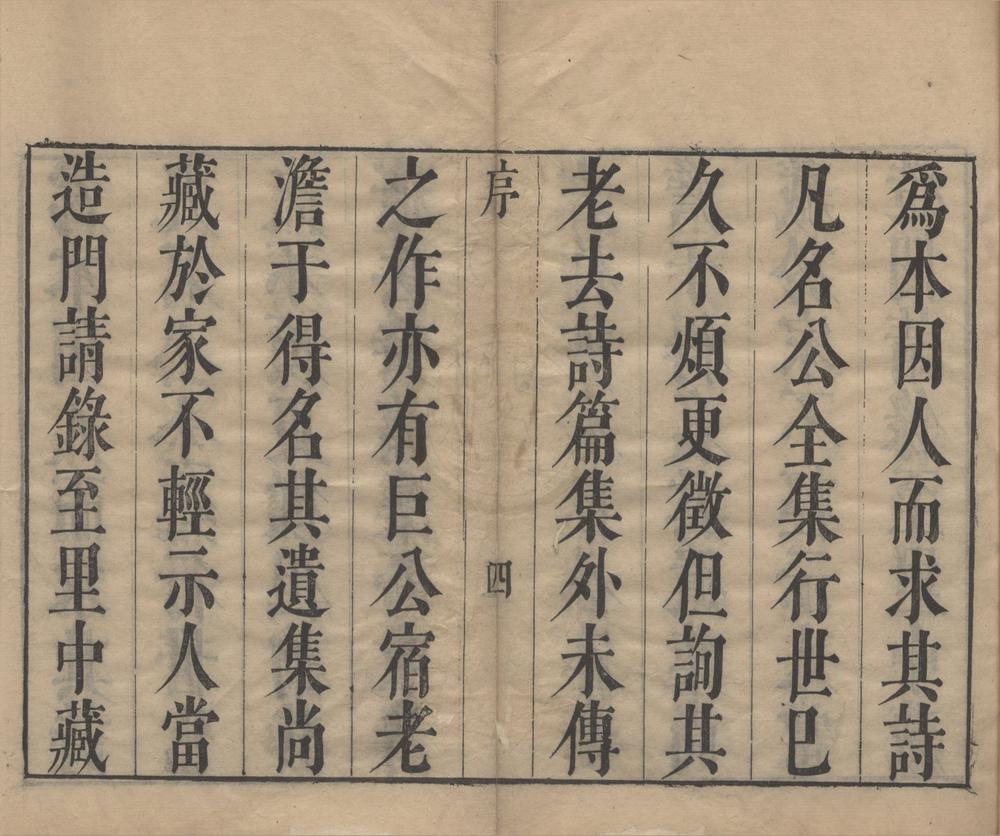 爲本因人而求其詩
凡名公全集行世已
久不煩更徵但詢其
老去詩篇集外未傳
序 四
之作亦有巨公宿老
澹于得名其遺集尚
藏於家不輕示人當
造門請錄至里中藏